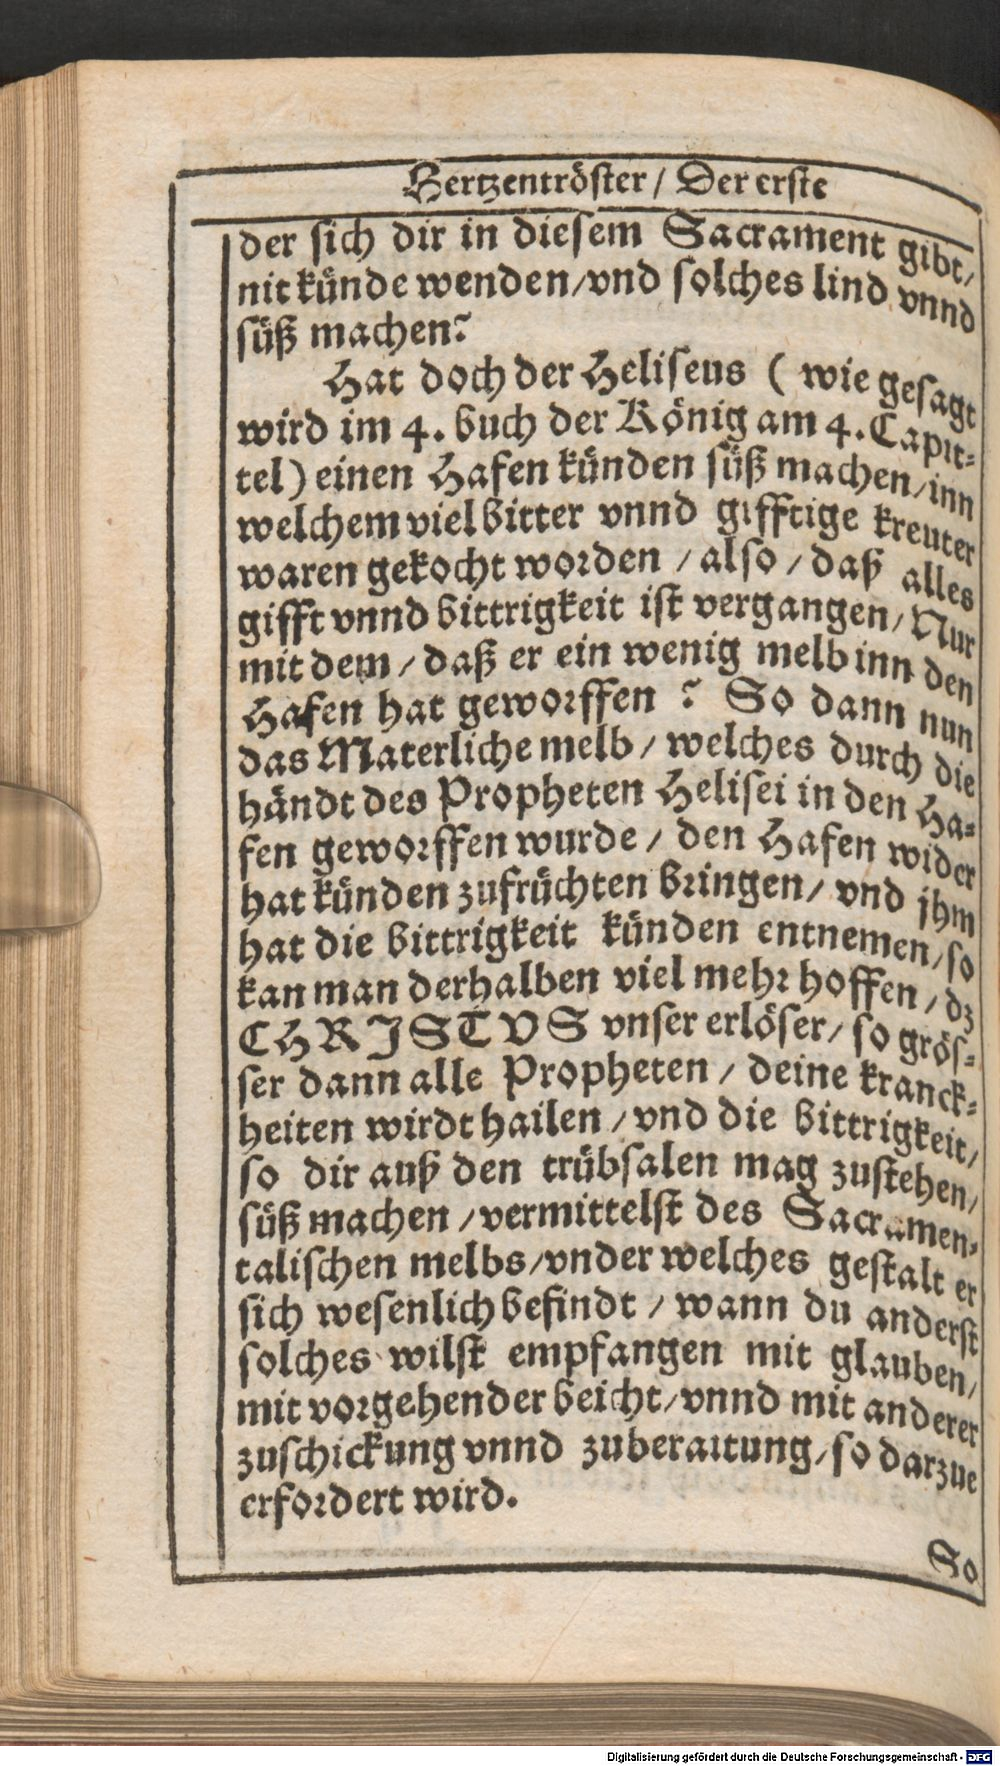 Hertzentröster / Der erste
der sich dir in diesem Sacrament gibt/
nit künde wenden/vnd solches lind vnnd
süß machen?
Hat doch der Heliseus ( wie gesagt
wird im 4. buch der König am 4. Capit-
tel) einen Hafen künden süß machen/inn
welchem viel bitter vnnd gifftige kreuter
waren gekocht worden / also / daß alles
gifft vnnd bittrigkeit ist vergangen/ Nur
mit dem / daß er ein wenig melb inn den
Hafen hat geworffen ? So dann nun
das Materliche melb / welches durch die
händt des Propheten Helisei in den Ha-
fen geworffen wurde / den Hafen wider
hat künden zufrüchten bringen/ vnd jhm
hat die bittrigkeit künden entnemen/so
kan man derhalben viel mehr hoffen / dz
CHRISTVS vnser erlöser/ so grös-
ser dann alle Propheten / deine kranck-
heiten wirdt hailen / vnd die bittrigkeit/
so dir auß den trübsalen mag zustehen/
süß machen /vermittelst des Sacramen-
talischen melbs/vnder welches gestalt er
sich wesenlich befindt / wann du anderst
solches wilst empfangen mit glauben/
mit vorgehender beicht/vnnd mit anderer
zuschickung vnnd zuberaitung/so darzue
erfordert wird.
So
Digitalisierung gefördert durch die Deutsche Forschungsgemeinschaft - DFG